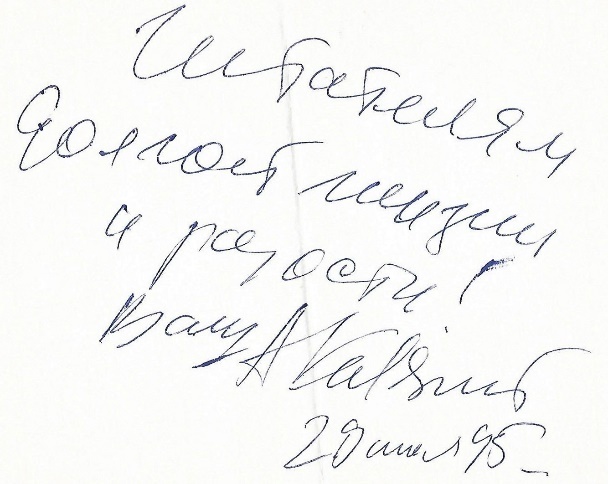 Читателям
долгой жизни
и радости!
Ваш А
20 июля 95